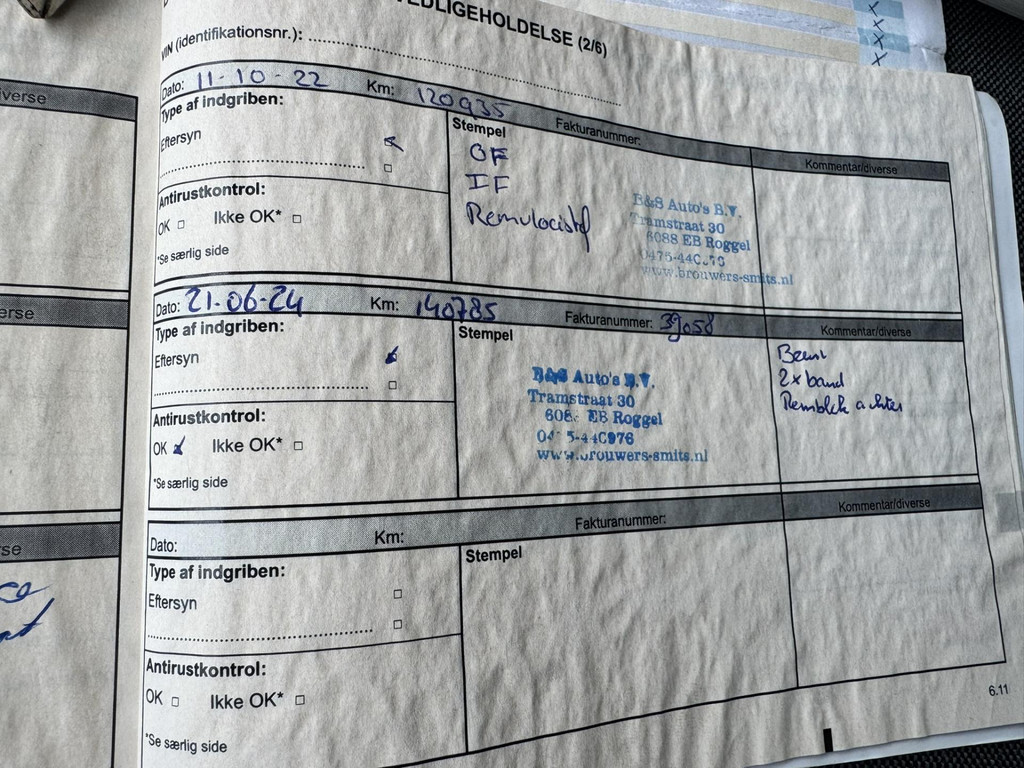 VEDLIGEHOLDELSE (2/6)
VIN (identifikationsnr.):
Dato: 11-10-22 Km: 120935 Fakturanummer: Kommentar/diverse
Type af indgriben:
Stempel
Eftersyn
OF
IF
Antirustkontrol:
OK Ikke OK*
*Se særlig side
B&S Auto's B.V.
Tramstraat 30
6088 EB Roggel
www.brouwers-smits.nl
Dato: 21-06-24 Km: 140785 Fakturanummer: 39058 Kommentar/diverse
Type af indgriben:
Stempel
Eftersyn
B&S Auto's B.V.
Tramstraat 30
EB Roggel
www.brouwers-smits.nl
2x band
Remblok achter
Antirustkontrol:
OK Ikke OK*
*Se særlig side
Dato: Km: Fakturanummer: Kommentar/diverse
Type af indgriben:
Stempel
Eftersyn
Antirustkontrol:
OK Ikke OK*
*Se særlig side
6.11